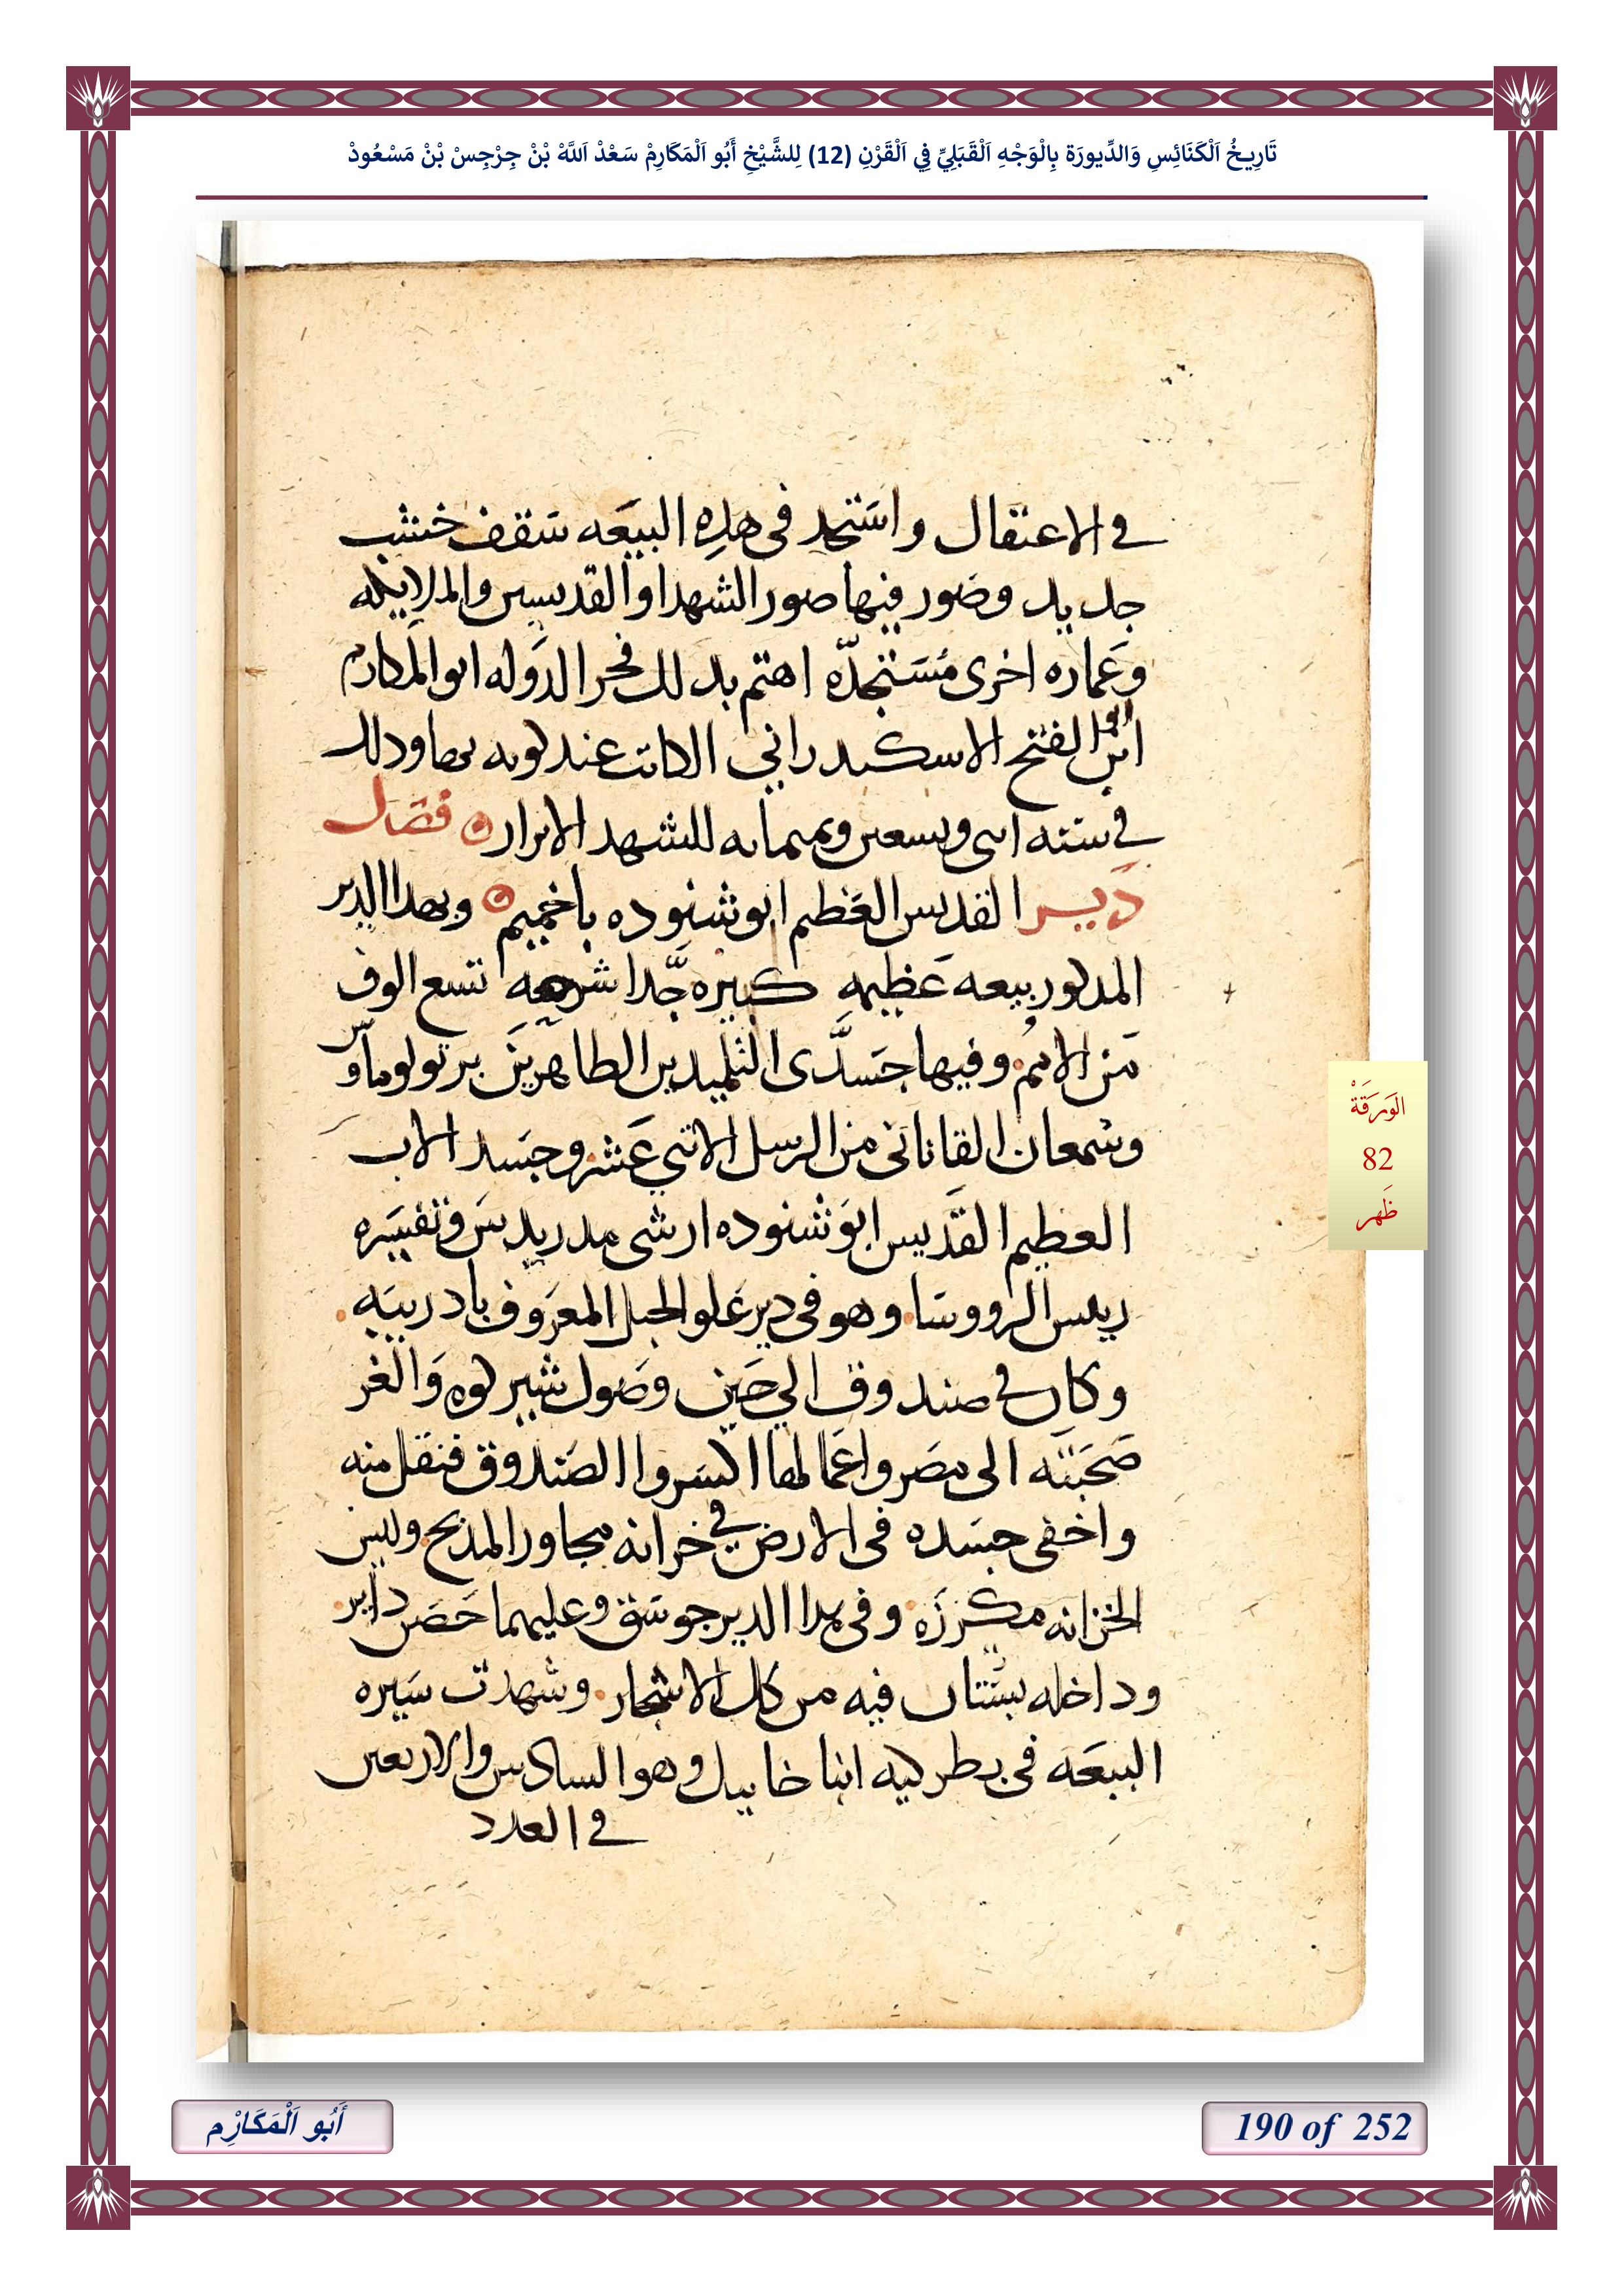 تَارِيخُ اَلْكَنَائِسِ وَالدِّيورَة بِالْوَجْهِ اَلْقَبَلِيِّ فِي اَلْقَرْنِ (12) لِلشَّيْخِ أَبُو اَلْمَكَارِمْ سَعْدْ اَللَّهْ بْنْ جِرْجِسْ بْنْ مَسْعُودْ
في الاعتقال واستجد فى هذه البيعه سقف خشب
جديد وصور فيها صور الشهدا والقديسين والملايكه
وعماره اخرى مستجده اهتم بدلك فخر الدوله ابو المكارم
ابن الفتح الاسكندراني الكاتب عند كونه بها ودلك
في سنه اثنى وتسعين وثمانمايه للشهدا الابرار فصل
دير القديس العظيم ابو شنوده باخميم وبهدا الدير
المدكور بيعه عظيمه كبيره جدا تسع الوف
من الامم وفيها جسدى التلميدين الطاهرين برتولوماوس
وسمعان القانانى من الرسل الاتني عشر وجسد الاب
العظيم القديس ابو شنوده ارشى مدريدس وتفسيره
رييس الرووسا وهو فى دير علو الجبل المعروف بادريبه
وكان في صندوق الي حين وصول شيركوه والغز
صحبته الى مصر واعمالها اكسروا الصندوق فنقل منه
واخفى جسده فى الارض في خزانه مجاور المدبح وليس
الخزانه مكرزه وفى هدا الدير جوسق وعليهما حصن داير
وداخله بستان فيه من كل الاشجار وشهدت سيره
البيعه فى بطركيه انبا خاييل وهو السادس والاربعين
في العدد
الوَرَقَةْ
82
ظَهر
أَبُو اَلْمَكَارْمِ
190 of 252